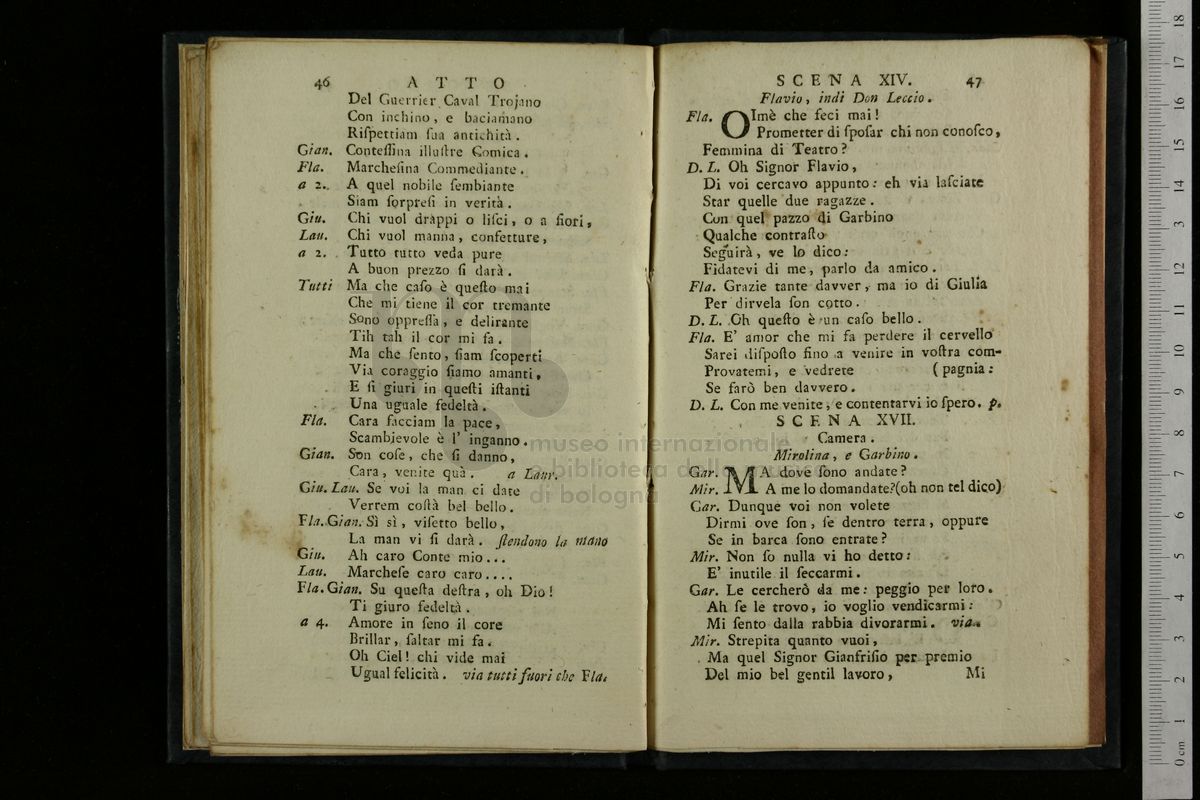 46 A T T O
Del Guerrier Caval Trojano
Con inchino, e baciamano
Riſpettiam ſua antichità.
Gian. Conteſſina illuſtre Comica.
Fla. Marcheſina Commediante.
a 2. A quel nobile ſembiante
Siam ſorpreſi in verità.
Giu. Chi vuol drappi o liſci, o a fiori,
Lau. Chi vuol manna, confetture,
a 2. Tutto tutto veda pure
A buon prezzo ſi darà.
Tutti Ma che caſo è queſto mai
Che mi tiene il cor tremante
Sono oppreſſa, e delirante
Tih tah il cor mi fa.
Ma che ſento, ſiam ſcoperti
Via coraggio ſiamo amanti,
E ſi giuri in queſti iſtanti
Una uguale fedeltà.
Fla. Cara facciam la pace,
Scambievole è l' inganno.
Gian. Son coſe, che ſi danno,
Cara, venite quà. a Laur.
Giu. Lau. Se voi la man ci date
Verrem coſtà bel bello.
Fla. Gian. Sì sì, viſetto bello,
La man vi ſi darà. ſtendono la mano
Giu. Ah caro Conte mio...
Lau. Marcheſe caro caro....
Fla. Gian. Su queſta deſtra, oh Dio!
Ti giuro fedeltà.
a 4. Amore in ſeno il core
Brillar, ſaltar mi fa.
Oh Ciel! chi vide mai
Ugual felicità. via tutti fuori che Fla.
SCENA XIV. 47
Flavio, indi Don Leccio.
Fla. OImè che feci mai!
Prometter di ſpoſar chi non conoſco,
Femmina di Teatro?
D. L. Oh Signor Flavio,
Di voi cercavo appunto: eh via laſciate
Star quelle due ragazze.
Con quel pazzo di Garbino
Qualche contraſto
Seguirà, ve lo dico:
Fidatevi di me, parlo da amico.
Fla. Grazie tante davver, ma io di Giulia
Per dirvela ſon cotto.
D. L. Oh queſto è un caſo bello.
Fla. E' amor che mi fa perdere il cervello
Sarei diſpoſto fino a venire in voſtra com-
Provatemi, e vedrete (pagnia:
Se farò ben davvero.
D. L. Con me venite, e contentarvi io ſpero. p.
SCENA XVII.
Camera.
Mirolina, e Garbino.
Gar. MA dove ſono andate?
Mir. A me lo domandate?(oh non tel dico)
Gar. Dunque voi non volete
Dirmi ove ſon, ſe dentro terra, oppure
Se in barca ſono entrate?
Mir. Non ſo nulla vi ho detto:
E' inutile il ſeccarmi.
Gar. Le cercherò da me: peggio per loro.
Ah ſe le trovo, io voglio vendicarmi:
Mi ſento dalla rabbia divorarmi. via.
Mir. Strepita quanto vuoi,
Ma quel Signor Gianfriſio per premio
Del mio bel gentil lavoro, Mi
museo internazionale
e biblioteca della musica
di bologna
0 cm 1 2 3 4 5 6 7 8 9 10 11 12 13 14 15 16 17 18